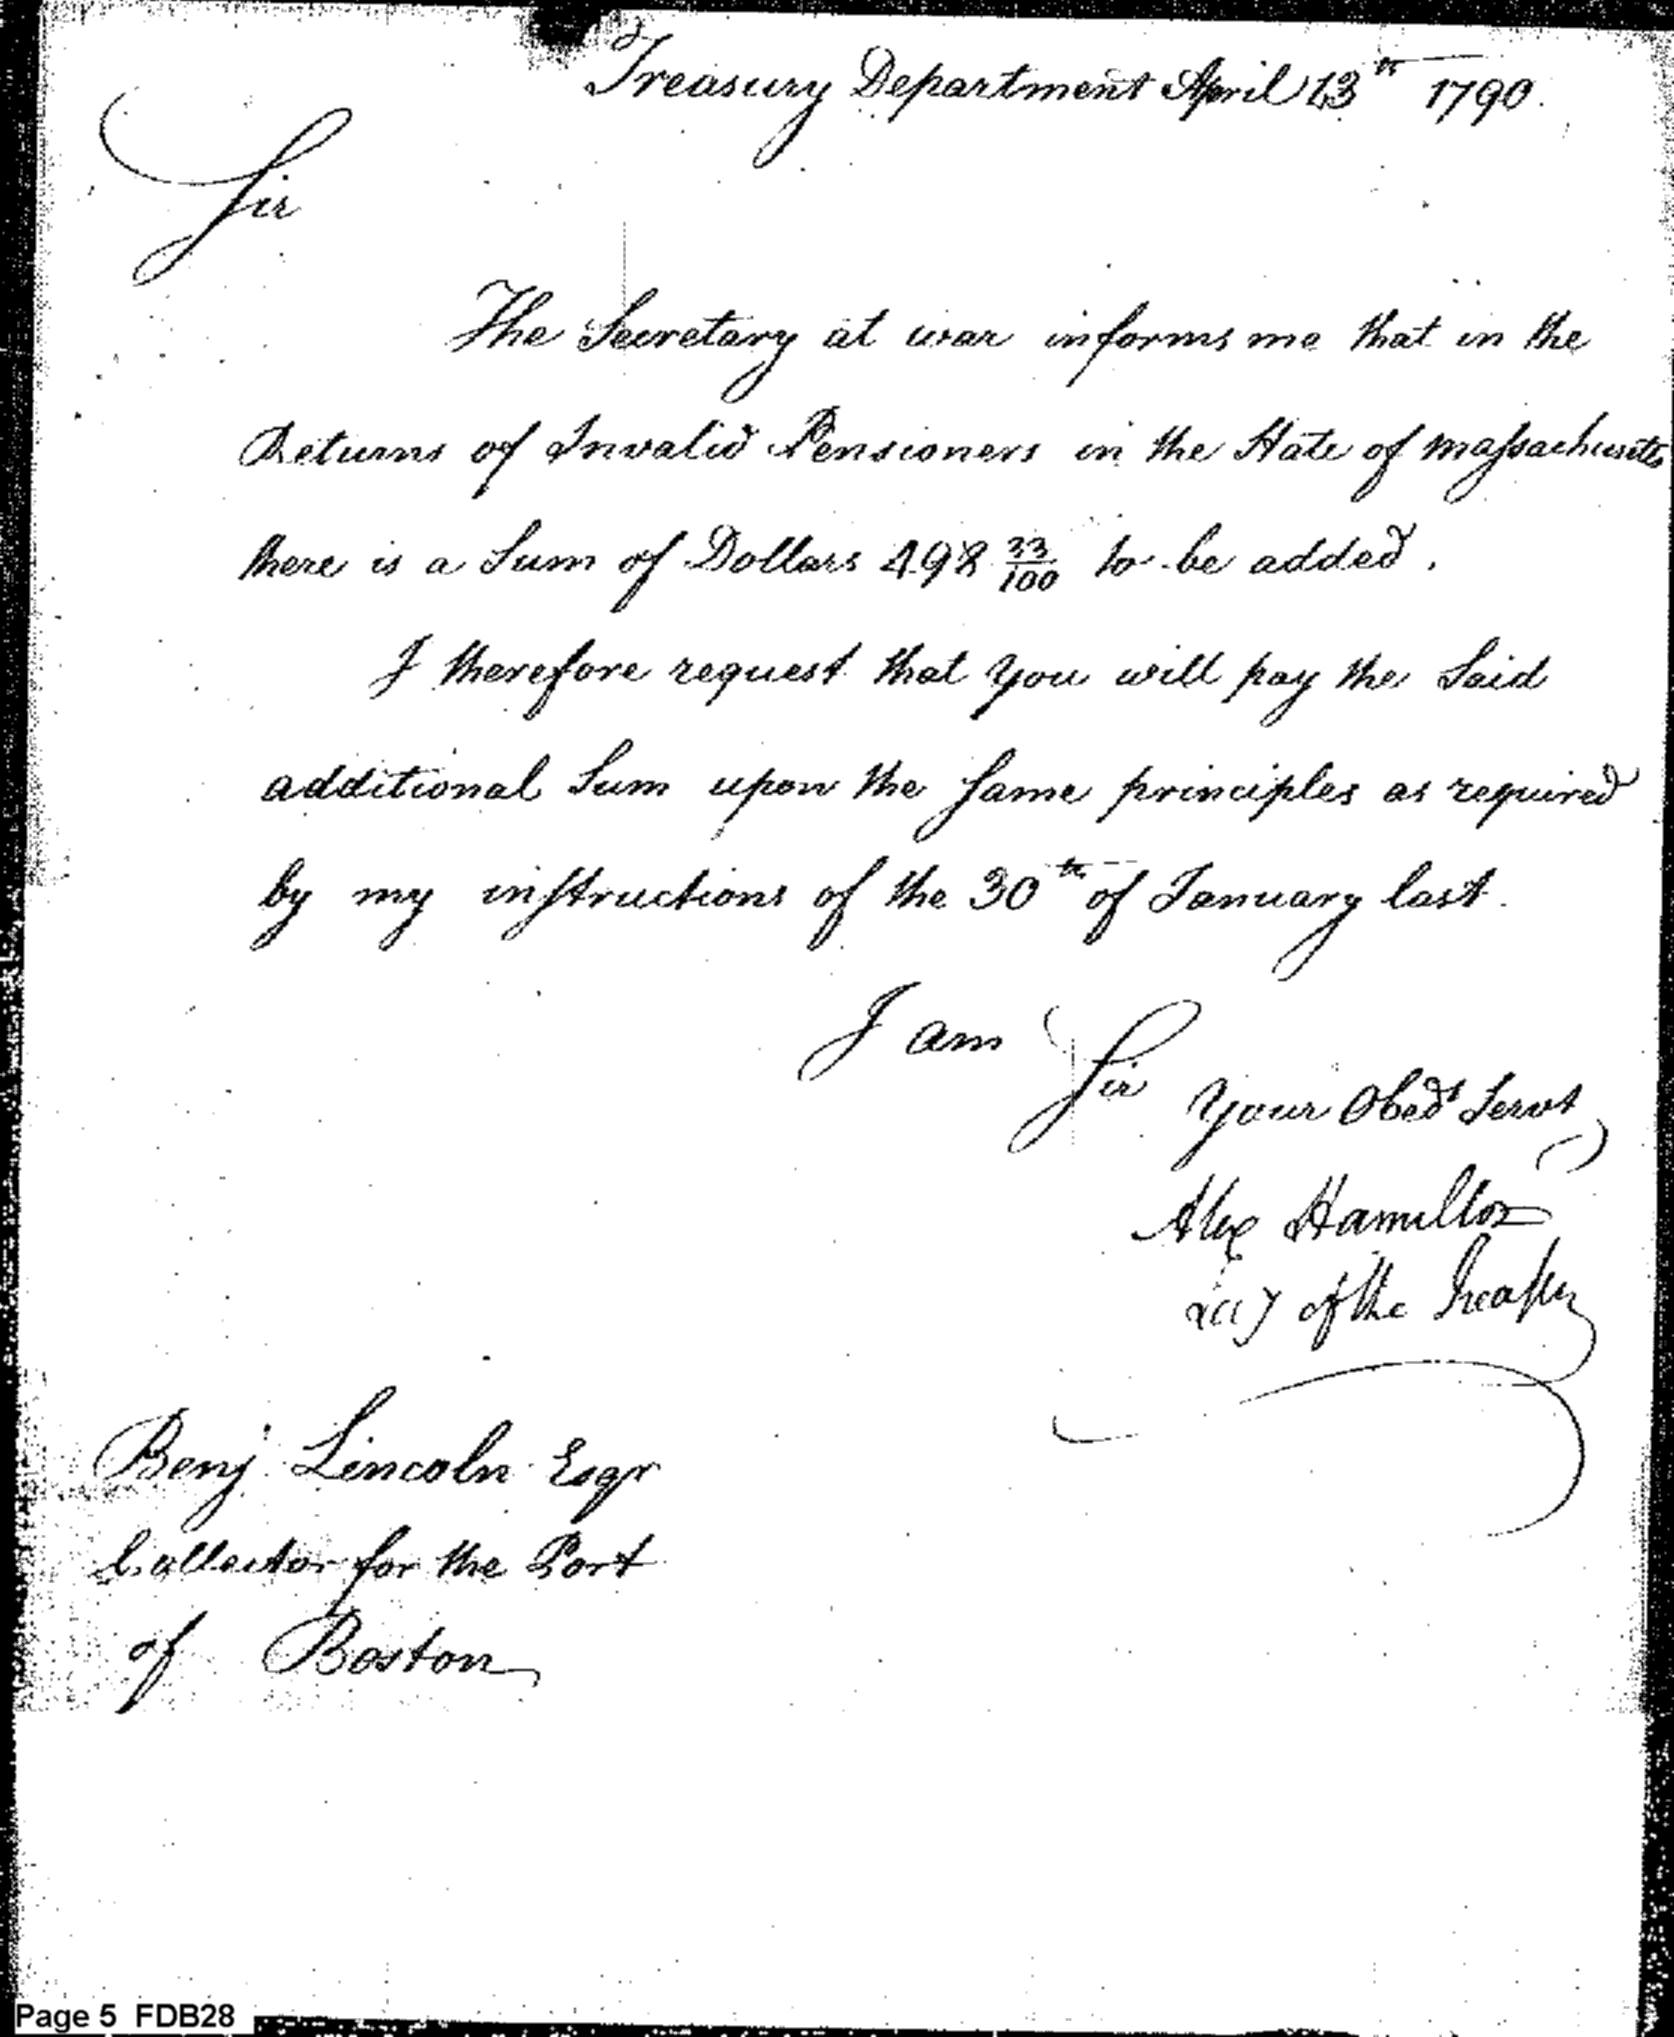 Treasury Department April 13th 1790.
Sir
The Secretary at war informs me that in the
Returns of Invalid Pensioners in the State of Massachusetts
there is a Sum of Dollars 498 33/100 to be added.
I therefore request that you will pay the Said
additional Sum upon the Same principles as required
by my instructions of the 30th of January last.
I am Sir
Your Obedt Servt
Alex Hamilton
Secy of the Treasury
Benj Lincoln Esqr
Collector for the Port
of Boston
Page 5 FDB28